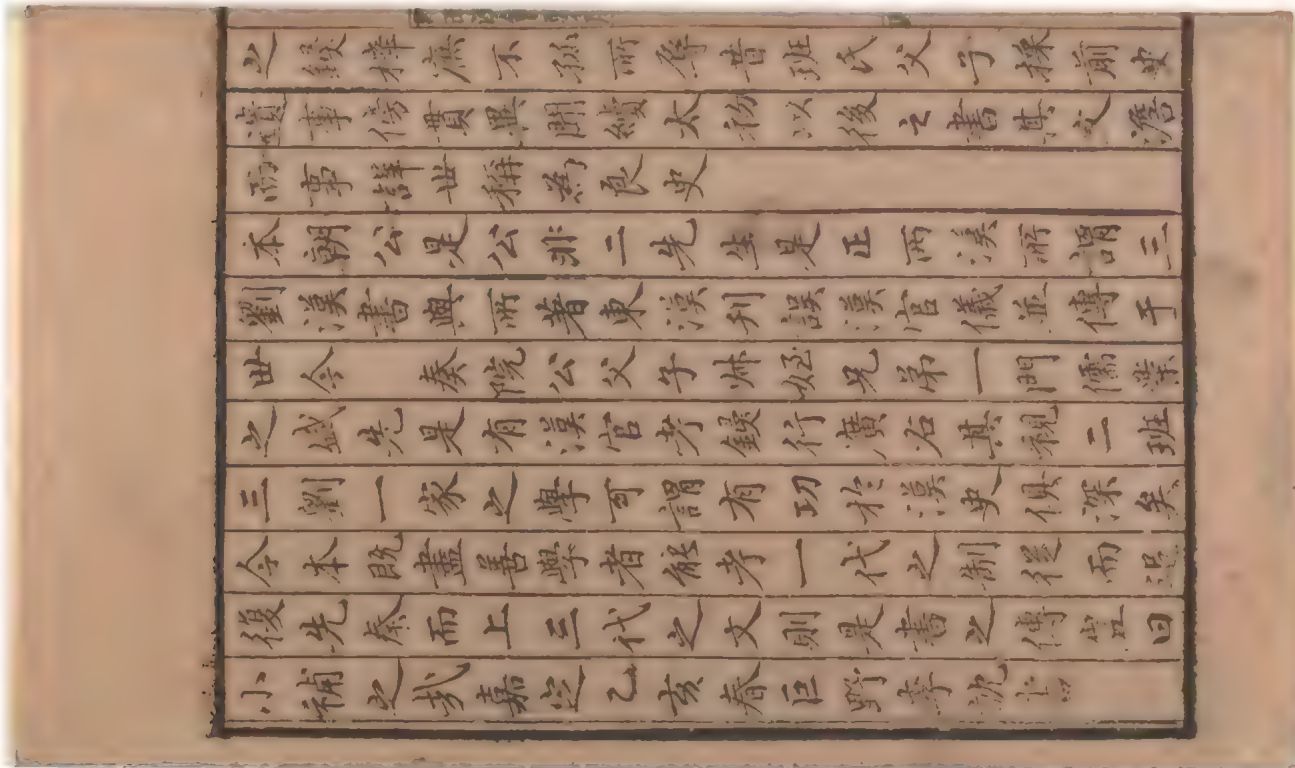 之鋟梓庶不孤所辱昔班氏父子採前史
遺事傍貫異聞續太初以後之書其文澹
而事詳世稱為良史
本朝公是公非二先生是正兩漢所謂三
劉漢書與所著東漢刊誤漢官儀並傳于
世今 奏院公父子叔姪兄弟一門儒業
之盛先是有漢官考鋟行廣右其視二班
三劉一家之學可謂有功於漢史俱深矣
今本既盡善學者能考一代之制從而
復先秦而上三代之文則是書之傳豈曰
小補之哉嘉定乙亥春巨野李